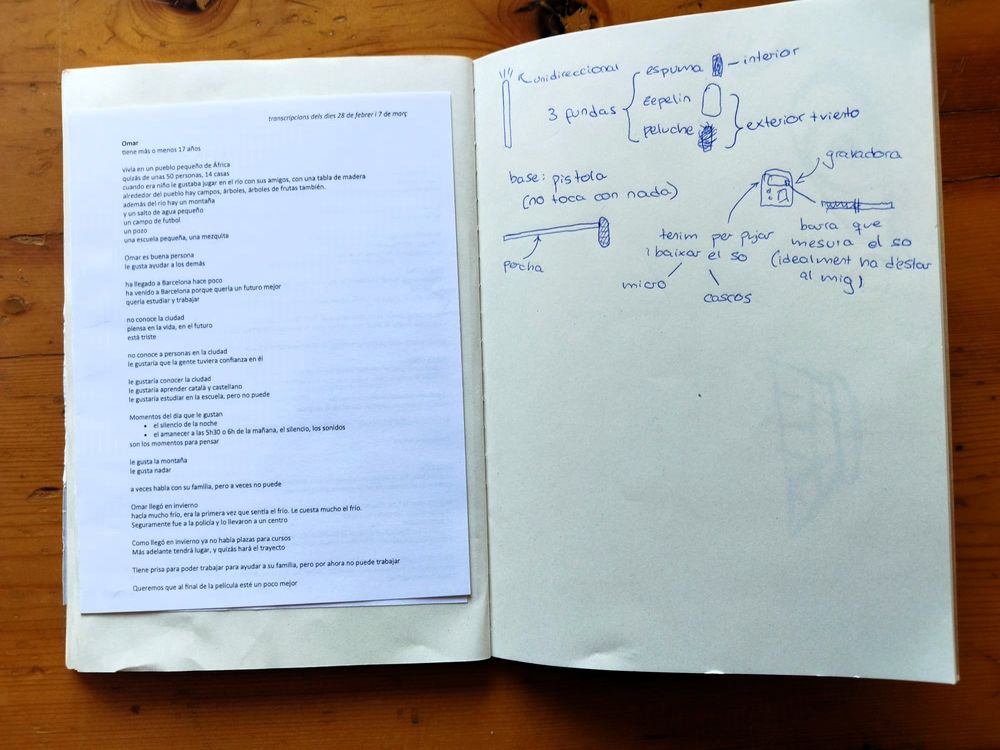 transcripcions dels dies 28 de febrer i 7 de març
Omar
tiene más o menos 17 años
vivia en un pueblo pequeño de África
quizás de unas 50 personas, 14 casas
cuando era niño le gustaba jugar en el río con sus amigos, con una tabla de madera
alrededor del pueblo hay campos, árboles, árboles de frutas también.
además del río hay un montaña
y un salto de agua pequeño
un campo de futbol
un pozo
una escuela pequeña, una mezquita
Omar es buena persona
le gusta ayudar a los demás
ha llegado a Barcelona hace poco
ha venido a Barcelona porque quería un futuro mejor
quería estudiar y trabajar
no conoce la ciudad
piensa en la vida, en el futuro
está triste
no conoce a personas en la ciudad
le gustaría que la gente tuviera confianza en él
le gustaría conocer la ciudad
le gustaría aprender català y castellano
le gustaría estudiar en la escuela, pero no puede
Momentos del día que le gustan
• el silencio de la noche
• el amanecer a las 5h30 o 6h de la mañana, el silencio, los sonidos
son los momentos para pensar
le gusta la montaña
le gusta nadar
a veces habla con su familia, pero a veces no puede
Omar llegó en invierno
hacía mucho frío, era la primera vez que sentía el frío. Le cuesta mucho el frío.
Seguramente fue a la policía y lo llevaron a un centro
Como llegó en invierno ya no había plazas para cursos
Más adelante tendrá lugar, y quizás hará el trayecto
Tiene prisa para poder trabajar para ayudar a su familia, pero por ahora no puede trabajar
Queremos que al final de la película esté un poco mejor
unidireccional
3 fundas
espuma – interior
zepelin
peluche
exterior + viento
base: pistola
(no toca con nada)
percha
gravadora
tenim per pujar
i baixar el so
micro
cascos
barra que
mesura el so
(idealment ha d'estar
al mig)